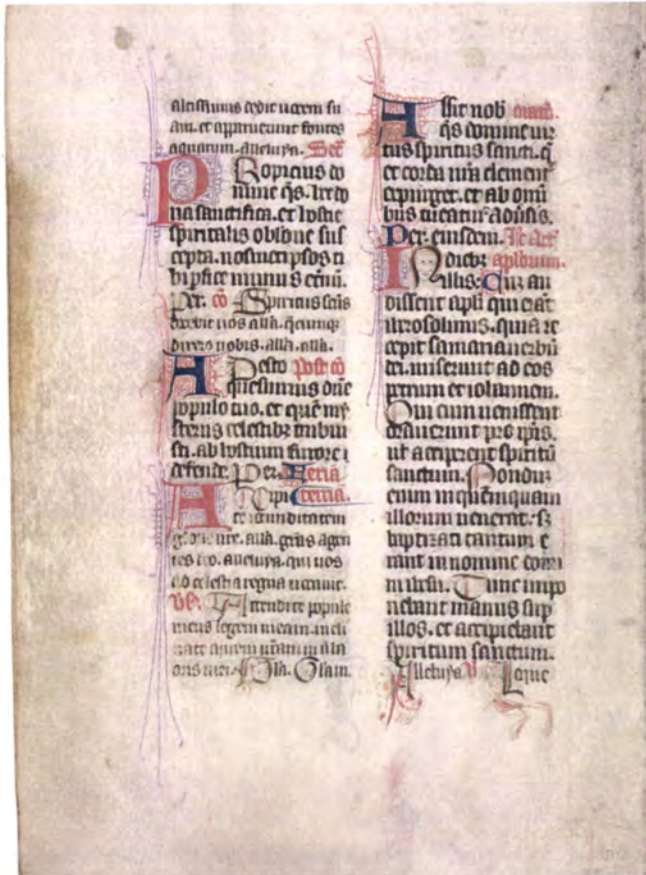 altissimus dedit uocem su
am. et apparuerunt fontes
aquarum. alleluya. Sec̄
Ropicius do
mine q̄s. hec do
na sanctifica. et hostie
spiritalis oblōne sus
cepta. nosmet ipsos ti
bi pfice munus etnū.
Per. cō Spiritus scūs
docebit uos alla. q̄cumq;
dixero uobis. alla. alla.
Adesto Post cō
quesumus dn̄e
populo tuo. et quē mys
teriis celestibz imbuis
ti. ab hostium furore
defende. Per. Feria
Accipi tercia.
te iocunditatem
glorie ure. alla. grās agen
tes deo. alleluya. qui uos
ad celestia regna uocauit.
Ps. Attendite popule
meus legem meam. incli
nate aurem urām in ūla
oris mei. Gla. Olam.
Assit nob̄ oratō.
q̄s domine uir
tus spiritus sancti. q̄
et corda nr̄a clement
expurget. et ab omī
bus tueatur aduīsis.
Per. eiusdem. Lc̄ Act̄
In diebz aplorum.
illis. Cum au
dissent apl̄i qui erāt
iherosolimis. quia re
cepit samaria uerbū
dei. miserunt ad eos
petrum et iohannem.
Qui cum uenissent
orauerunt pro ip̄is.
ut acciperent spiritū
sanctum. Nondum
enim in quemquam
illorum uenerat. sz
baptizati tantum e
rant in nomine domi
ni ihesu. Tunc impo
nebant manus sup
illos. et accipiebant
spiritum sanctum.
Alleluya V̄ Loque